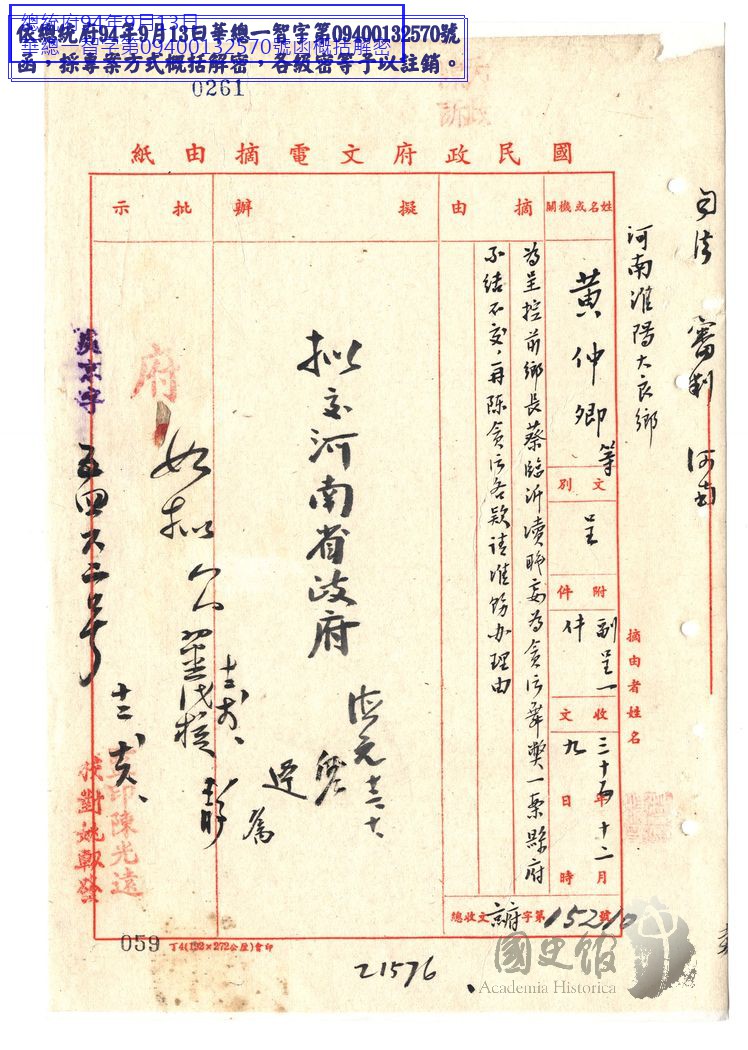 總統府94年9月13日
華總一智字第09400132570號函概括解密
依總統府94年9月13日華總一智字第09400132570號
函，採專案方式概括解密，各級密等予以註銷。
0261
國民政府文電摘由紙
司法 審判 河南
河南淮陽大良鄉
姓名或機關
黃仲卿等
文別
呈
附件
副呈一件
收文
三十五年十二月九日時
摘由者姓名
摘由
為呈控前鄉長蔡臨沂瀆職妄為貪污舞獘一案縣府
不結不交，再陳貪污各款請准飭办理由
擬辦
擬交河南省政府
批示
府
如拟
京字
五四六二号
印陳光遠
校對姚
總收文京府字第15210號
059
丁4(192×272公厘)會印
21576
國史館
Academia Historica